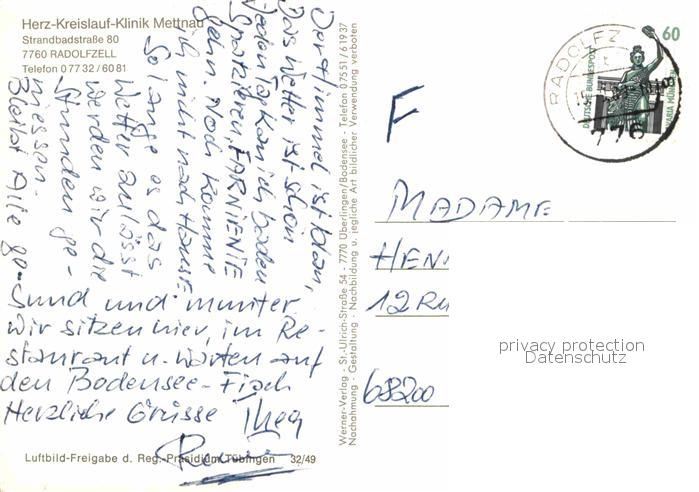 Herz-Kreislauf-Klinik Mettnau
Strandbadstraße 80
7760 RADOLFZELL
Telefon 0 77 32 / 60 81
Der Himmel ist blau,
Das Wetter ist schön
Jeden Tag kan ich baden
Spatzieren, FARNIENTE
gehn. Noch komme
ich nicht nach Hause
Solange es das
Wetter zulässt
werden wir die
Stunden ge-
niessen.
Bleibt Alle ge-
sund und munter
Wir sitzen hier, im Re-
staurant u. warten auf
den Bodensee-Fisch
Herzliche Grüsse
Luftbild-Freigabe d. Reg.-Präsidium Tübingen 32/49
Werner-Verlag - St.-Ulrich-Straße 54 - 7770 Überlingen/Bodensee - Telefon 07551/61937
Nachahmung - Gestaltung - Nachbildung u. jegliche Art bildlicher Verwendung verboten
F
RADOLFZ
776
60
DEUTSCHE BUNDESPOST
MADAME
HEN
12 RU
68200
privacy protection
Datenschutz